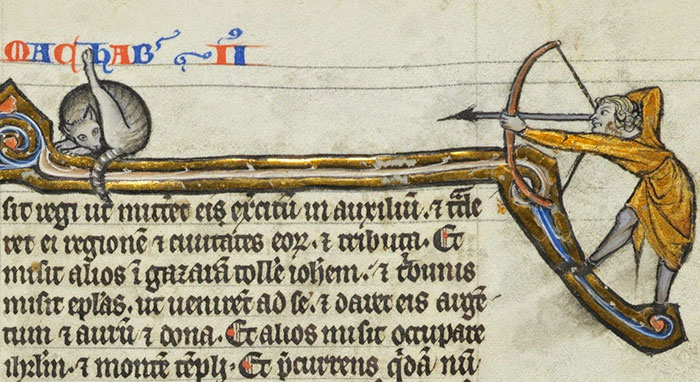 MACHAB᾽ II
sit regi ut mitt̄et eis ex̄citū in auxiliū. ⁊ t̄de
ret ei regionē ⁊ ciuitates eoꝝ. ⁊ tributa. Et
misit alios ī gazarā tolle᷑ ioh̄em. ⁊ t̓bunis
misit ep̄las. ut ueniret᷑ ad se. ⁊ daret eis argē
tum ⁊ aurū ⁊ dona. Et alios misit occupare
ihrl̄m. ⁊ montē tēpli. Et p̄currens q̓dā nū